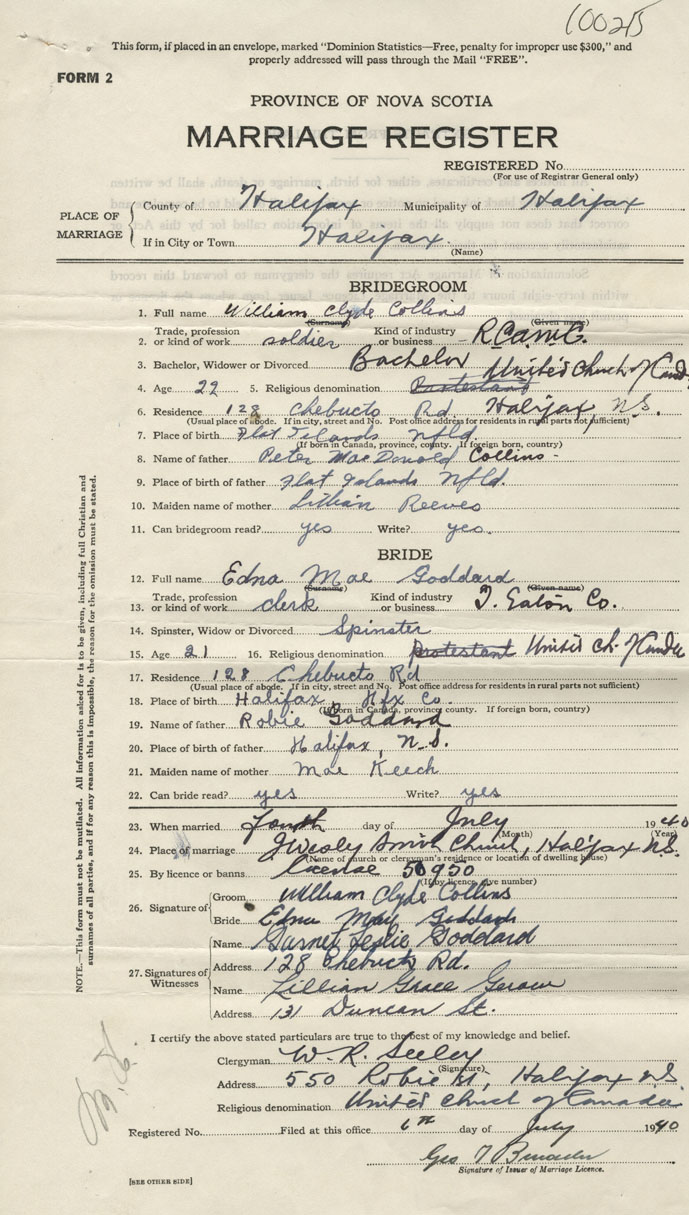 10025
This form, if placed in an envelope, marked "Dominion Statistics—Free, penalty for improper use $300," and
properly addressed will pass through the Mail "FREE".
FORM 2
PROVINCE OF NOVA SCOTIA
MARRIAGE REGISTER
REGISTERED No.
(For use of Registrar General only)
PLACE OF MARRIAGE
County of Halifax Municipality of Halifax
If in City or Town Halifax
(Name)
BRIDEGROOM
1. Full name William Clyde Collins
(Surname) (Given name)
2. Trade, profession or kind of work soldier Kind of industry or business R.C.A.M.C.
3. Bachelor, Widower or Divorced Bachelor
4. Age 22 5. Religious denomination Protestant United Church of Canad
6. Residence 128 Chebucto Rd. Halifax, N.S.
(Usual place of abode. If in city, street and No. Post office address for residents in rural parts not sufficient)
7. Place of birth Flat Islands Nfld.
(If born in Canada, province, county. If foreign born, country)
8. Name of father Peter MacDonald Collins
9. Place of birth of father Flat Islands Nfld.
10. Maiden name of mother Lillian Reeves
11. Can bridegroom read? yes Write? yes.
BRIDE
12. Full name Edna Mae Goddard
(Surname) (Given name)
13. Trade, profession or kind of work clerk Kind of industry or business T. Eaton Co.
14. Spinster, Widow or Divorced Spinster
15. Age 21 16. Religious denomination Protestant United Ch. of Canada
17. Residence 128 Chebucto Rd
(Usual place of abode. If in city, street and No. Post office address for residents in rural parts not sufficient)
18. Place of birth Halifax Hfx Co.
(If born in Canada, province county. If foreign born, country)
19. Name of father Robie Goddard
20. Place of birth of father Halifax, N.S.
21. Maiden name of mother Mae Keech
22. Can bride read? yes Write? yes
23. When married Fourth day of July 1940
(Month) (Year)
24. Place of marriage J Wesley Smith Church, Halifax N.S.
(Name of church or clergyman's residence or location of dwelling house)
25. By licence or banns license 50950
(If by licence, give number)
26. Signature of
Groom William Clyde Collins
Bride Edna Mae Goddard
27. Signatures of Witnesses
Name Garnet Leslie Goddard
Address 128 Chebucto Rd.
Name Lillian Grace
Address 131 Duncan St.
I certify the above stated particulars are true to the best of my knowledge and belief.
Clergyman W. R. Seeley
(Signature)
Address 550 Robie St, Halifax N.S.
Religious denomination United Church of Canada
Registered No. Filed at this office 6th day of July 1940
Geo T
Signature of Issuer of Marriage Licence.
[SEE OTHER SIDE]
NOTE.—This form must not be mutilated. All information asked for is to be given, including full Christian and
surnames of all parties, and if for any reason this is impossible, the reason for the omission must be stated.